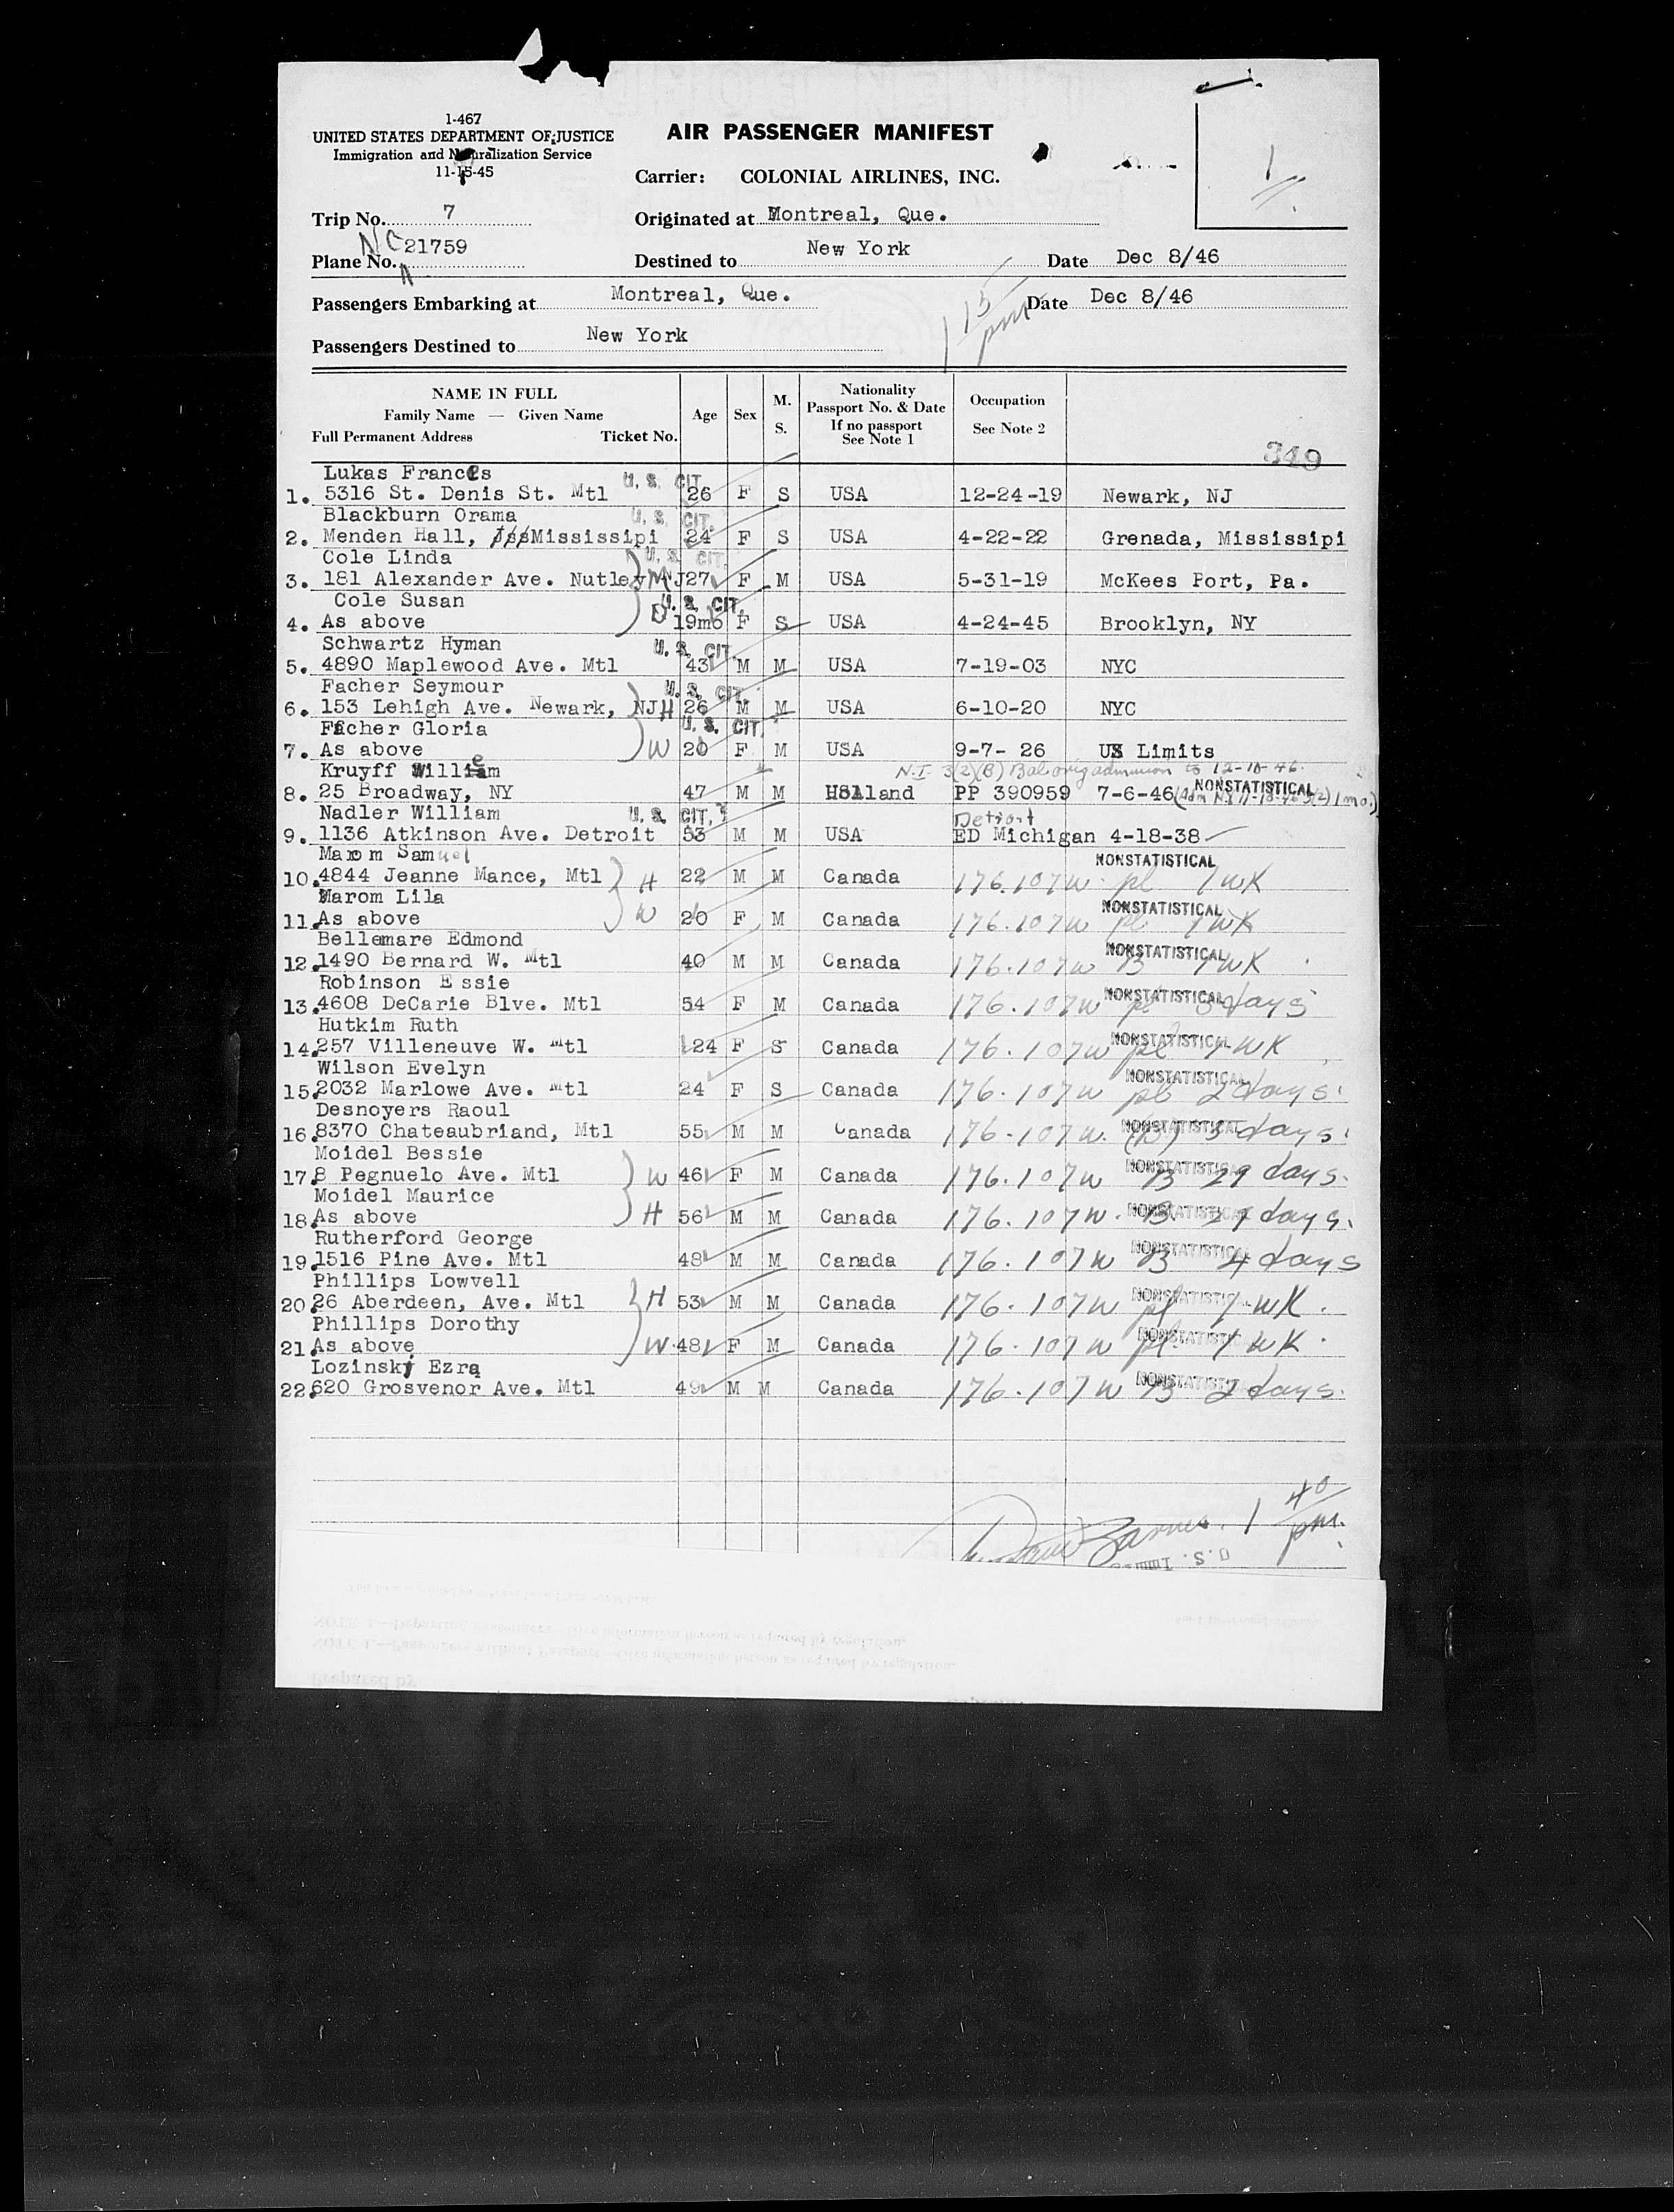 1-467
UNITED STATES DEPARTMENT OF JUSTICE
Immigration and Naturalization Service
11-15-45
AIR PASSENGER MANIFEST
Carrier: COLONIAL AIRLINES, INC.
1
Trip No. 7
Originated at Montreal, Que.
Plane No. NC 21759
Destined to New York Date Dec 8/46
Passengers Embarking at Montreal, Que. Date Dec 8/46
1 15 pm
Passengers Destined to New York
NAME IN FULL
Family Name — Given Name
Full Permanent Address Ticket No.
Age Sex M. S.
Nationality
Passport No. & Date
If no passport
See Note 1
Occupation
See Note 2
349
Lukas Frances U. S. CIT.
1. 5316 St. Denis St. Mtl 26 F S USA 12-24-19 Newark, NJ
Blackburn Orama U. S. CIT.
2. Menden Hall, Mississipi 24 F S USA 4-22-22 Grenada, Mississipi
Cole Linda U. S. CIT.
3. 181 Alexander Ave. Nutley NJ M 27 F M USA 5-31-19 McKees Port, Pa.
Cole Susan U. S. CIT.
4. As above D 19mo F S USA 4-24-45 Brooklyn, NY
Schwartz Hyman U. S. CIT.
5. 4890 Maplewood Ave. Mtl 43 M M USA 7-19-03 NYC
Facher Seymour U. S. CIT.
6. 153 Lehigh Ave. Newark, NJ H 26 M M USA 6-10-20 NYC
Facher Gloria U. S. CIT.
7. As above W 20 F M USA 9-7- 26 US Limits
Kruyff Willem N.I. 3(2)(B) Bal orig admission to 12-18-46.
8. 25 Broadway, NY 47 M M Holland PP 390959 7-6-46 NONSTATISTICAL (Adm NY 11-18-46 3(2) 1 mo.)
Nadler William U. S. CIT. Detroit
9. 1136 Atkinson Ave. Detroit 53 M M USA ED Michigan 4-18-38
Marom Samuel NONSTATISTICAL
10. 4844 Jeanne Mance, Mtl H 22 M M Canada 176.107w pl 1 wk
Marom Lila NONSTATISTICAL
11. As above W 20 F M Canada 176.107w pl 1 wk
Bellemare Edmond NONSTATISTICAL
12. 1490 Bernard W. Mtl 40 M M Canada 176.107w B 1 wk
Robinson Essie NONSTATISTICAL
13. 4608 DeCarie Blve. Mtl 54 F M Canada 176.107w pl days
Hutkim Ruth NONSTATISTICAL
14. 257 Villeneuve W. Mtl 24 F S Canada 176.107w pl 1 wk
Wilson Evelyn NONSTATISTICAL
15. 2032 Marlowe Ave. Mtl 24 F S Canada 176.107w pl 2 days.
Desnoyers Raoul NONSTATISTICAL
16. 8370 Chateaubriand, Mtl 55 M M Canada 176.107w. (B) 3 days.
Moidel Bessie NONSTATISTICAL
17. 8 Pegnuelo Ave. Mtl W 46 F M Canada 176.107w B 29 days.
Moidel Maurice NONSTATISTICAL
18. As above H 56 M M Canada 176.107w. B. 29 days.
Rutherford George NONSTATISTICAL
19. 1516 Pine Ave. Mtl 48 M M Canada 176.107w B 4 days
Phillips Lowvell NONSTATISTICAL
20. 26 Aberdeen, Ave. Mtl H 53 M M Canada 176.107w pl 1 wk.
Phillips Dorothy NONSTATISTICAL
21. As above W 48 F M Canada 176.107w pl. 1 wk.
Lozinsky Ezra NONSTATISTICAL
22. 620 Grosvenor Ave. Mtl 49 M M Canada 176.107w B 2 days.
1 40 pm.
U.S. Imm